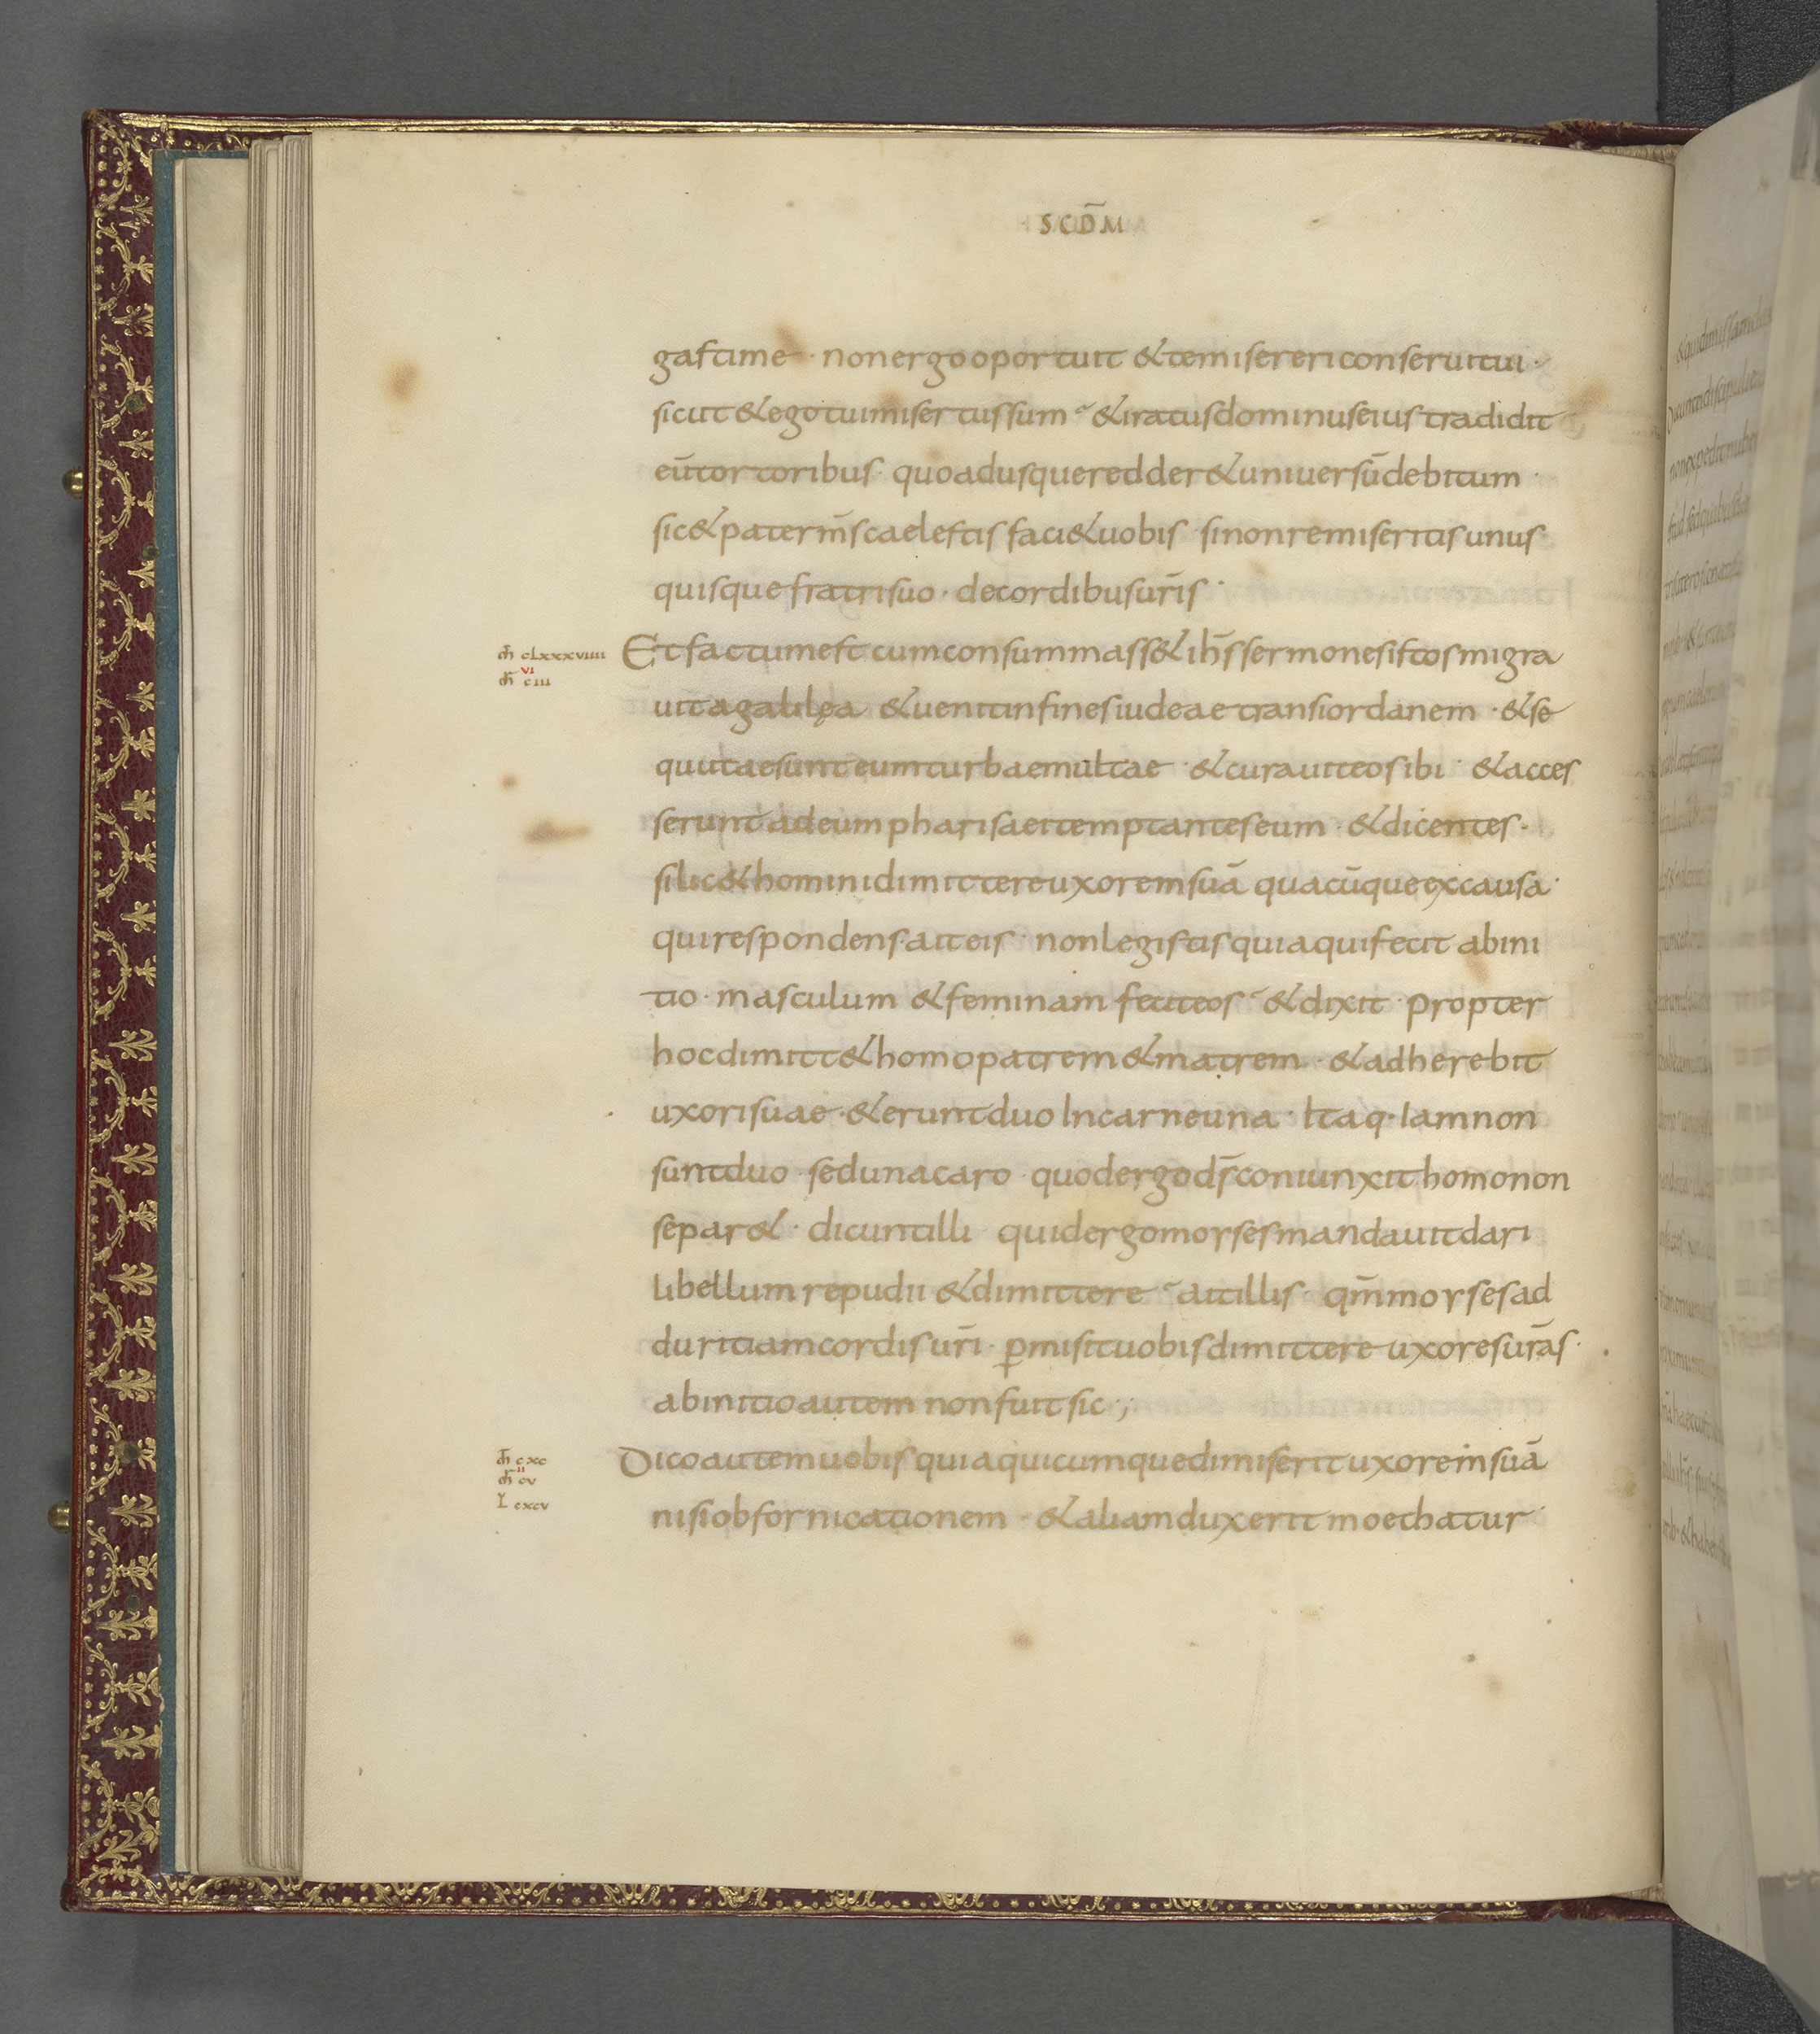 SCD̄M
gastime · nonergooportuit &temiserericonseruitui ·
sicut&egotuimisertussum · &iratusdominuseiustradidit
eūtortoribus · quoadusqueredder&uniuersūdebitum ·
sic&paterm̄scaelestis faci&uobis · sinonremiseritisunus
quisquefratrisuo · decordibusur̄is ·
m̄ clxxxviiii Etfactumest cumconsummass&ih̄ssermonesistosmigra
vi
m̄ ciii
uitagalilęa &uenitinfinesiudeaetransiordanem · &se
quutaesunteumturbaemultae · &curauiteosibi · &acces
seruntadeumpharisaeitemptanteseum · &dicentes ·
silic&hominidimittereuxoremsuā quacūqueexcausa ·
quirespondens·aiteis · nonlegistisquiaquifecit abini
tio · masculum &feminam feciteos · &dixit · propter
hocdimitt&homopatrem&matrem · &adherebit
uxorisuae · &eruntduoIncarneuna · Itaq·Iamnon
suntduo · sedunacaro · quodergods̄coniunxithomonon
separ& · dicuntilli quidergomorsesmandauitdari
libellumrepudii &dimittere · aitillis · qm̄morsesad
duritiamcordisur̄i · ꝑmisituobisdimittereuxoresur̄as ·
abinitioautem nonfuitsic ·,
m̄ cxc Dicoautemuobisquiaquicumquedimiserituxoremsuā
ii
m̄ cv
L cxcv
nisiobfornicationem · &aliamduxerit moechatur ·